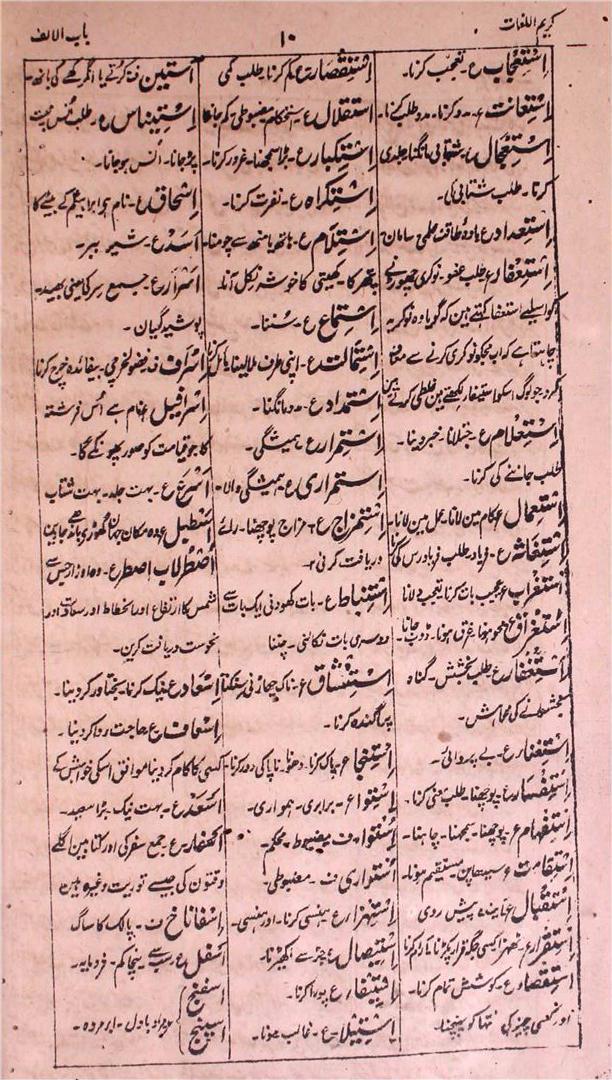 کریم اللغات
۱۰
باب الالف
اِسْتِعْجَاب ع۔ تعجب کرنا۔
اِسْتِعَانَت ع۔ مدد کرنا۔ مدد طلب کرنا۔
اِسْتِعْجَال ع۔ شتابی مانگنا۔ جلدی
کرنا۔ طلب شتابی کی۔
اِسْتِعْدَاد ع مادہ طاقت علمی سامان
اِسْتِعْفَا ع طلب عفو۔ نوکری چھوڑنے
کو اسلیے استعفا کہتے ہین کہ گویا وہ نوکر یہ
چاہتا ہے کہ اب مجکو نوکری کرنے سے معاف
کرو جو لوگ اسکو استیفا لکھتے ہین غلطی کرتے ہین
اِسْتِعْلَام ع۔ جتلانا۔ خبر دینا۔
طلب جاننے کی کرنا۔
اِسْتِعْمَال ع کام مین لانا۔ عمل مین لانا۔
اِسْتِغَاثَہ ع۔ فریاد۔ طلب فریاد رسی کی
اِسْتِغْرَاب ع عجیب بات کرنا۔ تعجب لانا
اِسْتِغْرَاق ع محو ہونا۔ غرق ہونا۔ ڈوب جانا
اِسْتِغْفَار ع طلب بخشش۔ گناہ
بخشوانے کی خواہش۔
ع۔ بے پروائی۔
اِسْتِفْسَار ع۔ پوچھنا۔ طلب معنی کرنا۔
اِسْتِفْہَام ع۔ پوچھنا۔ سمجھنا۔ چاہنا۔
اِسْتِقَامَت ع سیدھاپن۔ مستقیم ہونا۔
اِسْتِقْبَال ع پیش روی
اِسْتِقْرَار ع۔ ٹھہرنا کسی جگہ قرار پکڑنا
اِسْتِقْصَا ع۔ کوشش تمام کرنا۔
اور کسی چیز کی انتہا کو پہنچنا۔
ع کم کرنا۔ طلب کمی
اِسْتِقْلَال ع۔ استحکام مضبوطی۔ کم جاننا
اِسْتِکْبَار ع۔ بڑا سمجھنا۔ غرور کرنا۔
اِسْتِکْرَاہ ع۔ نفرت کرنا۔
اِسْتِلَام ع۔ ہاتھ یا منھ سے چومنا۔
پتھر کا۔ کھیتی کا خوشہ نکل آنا۔
اِسْتِمَاع ع۔ سننا۔
اِسْتِمَالَت ع۔ اپنی طرف
اِسْتِمْدَاد ع۔ مدد مانگنا۔
اِسْتِمْرَار ع۔ ہمیشگی۔
اِسْتِمْرَارِی ع ہمیشگی والا۔
اِسْتِمْزَاج ع۔ مزاج پوچھنا۔ رائے
دریافت کرنی۔
اِسْتِنْبَاط ع۔ بات کھودنی ایک بات سے
دوسری بات نکالنی۔ چننا
اِسْتِنْشَاق ع۔ ناک جھاڑنی سنکنا
پراگندہ کرنا۔
اِسْتِنْجَا ع۔ پاک کرنا۔ دھونا۔ ناپاکی دور کرنا۔
اِسْتِوَا ع۔ برابری۔ ہمواری۔
اُسْتُوَار ف۔ مضبوط۔ محکم۔
اُسْتُوَارِی ف۔ مضبوطی۔
اِسْتِہْزَا ع۔ ہنسی کرنا۔ اور ہنسی۔
اِسْتِیصَال ع۔ جڑ سے اکھیڑنا۔
اِسْتِیفَا ع پورا کرنا۔
اِسْتِیلَا۔ ع۔ غالب ہونا۔
آسْتِین ف کرتے یا انگرکھے کی بانھ۔
اِسْتِینَاس ع۔ طلب انس محبت
پڑ جانا۔ انس ہو جانا۔
اِسْحَاق ع۔ نام ہے ابراہیم کے بیٹے کا
اَسَد ع۔ شیر ببر۔
اَسْرَار ع۔ جمیع سر کی یعنی بھید۔
پوشیدگیان۔
اِسْرَاف ف فضول خرچی۔ بیفائدہ خرچ کرنا
اِسْرَافِیل ع نام ہے اُس فرشتہ
کا جو قیامت کو صور پھونکے گا۔
اَسْرَع ع۔ بہت جلد۔ بہت شتاب
اِسْطَبْل ع وہ مکان جہان گھوڑے باندھے جاوین
اُصْطُرْلَاب اصطر ع۔ وہ اوزار جس سے
شمس کا ارتفاع اور انحطاط اور سعادت اور
نحوست دریافت کرین۔
اِسْعَاد ع نیک کرنا۔ بختاور کر دینا۔
اِسْعَاف ع حاجت روا کر دینا۔
کسی کا کام کر دینا موافق اسکی خواہش کے
اَسْعَد ع۔ بہت نیک۔ بڑا سعید۔
اَسْفَار۔ ع جمع سفر کی اور کتابین اگلے
وقتون کی جیسے توریت وغیرہ ہین
اِسْفَانَاخ ف۔ پالک کا ساگ
اَسْفَل ع سب سے نیچا کم۔ فرومایہ۔
اسفنج
اسپنج
بادل۔ ابر مردہ۔